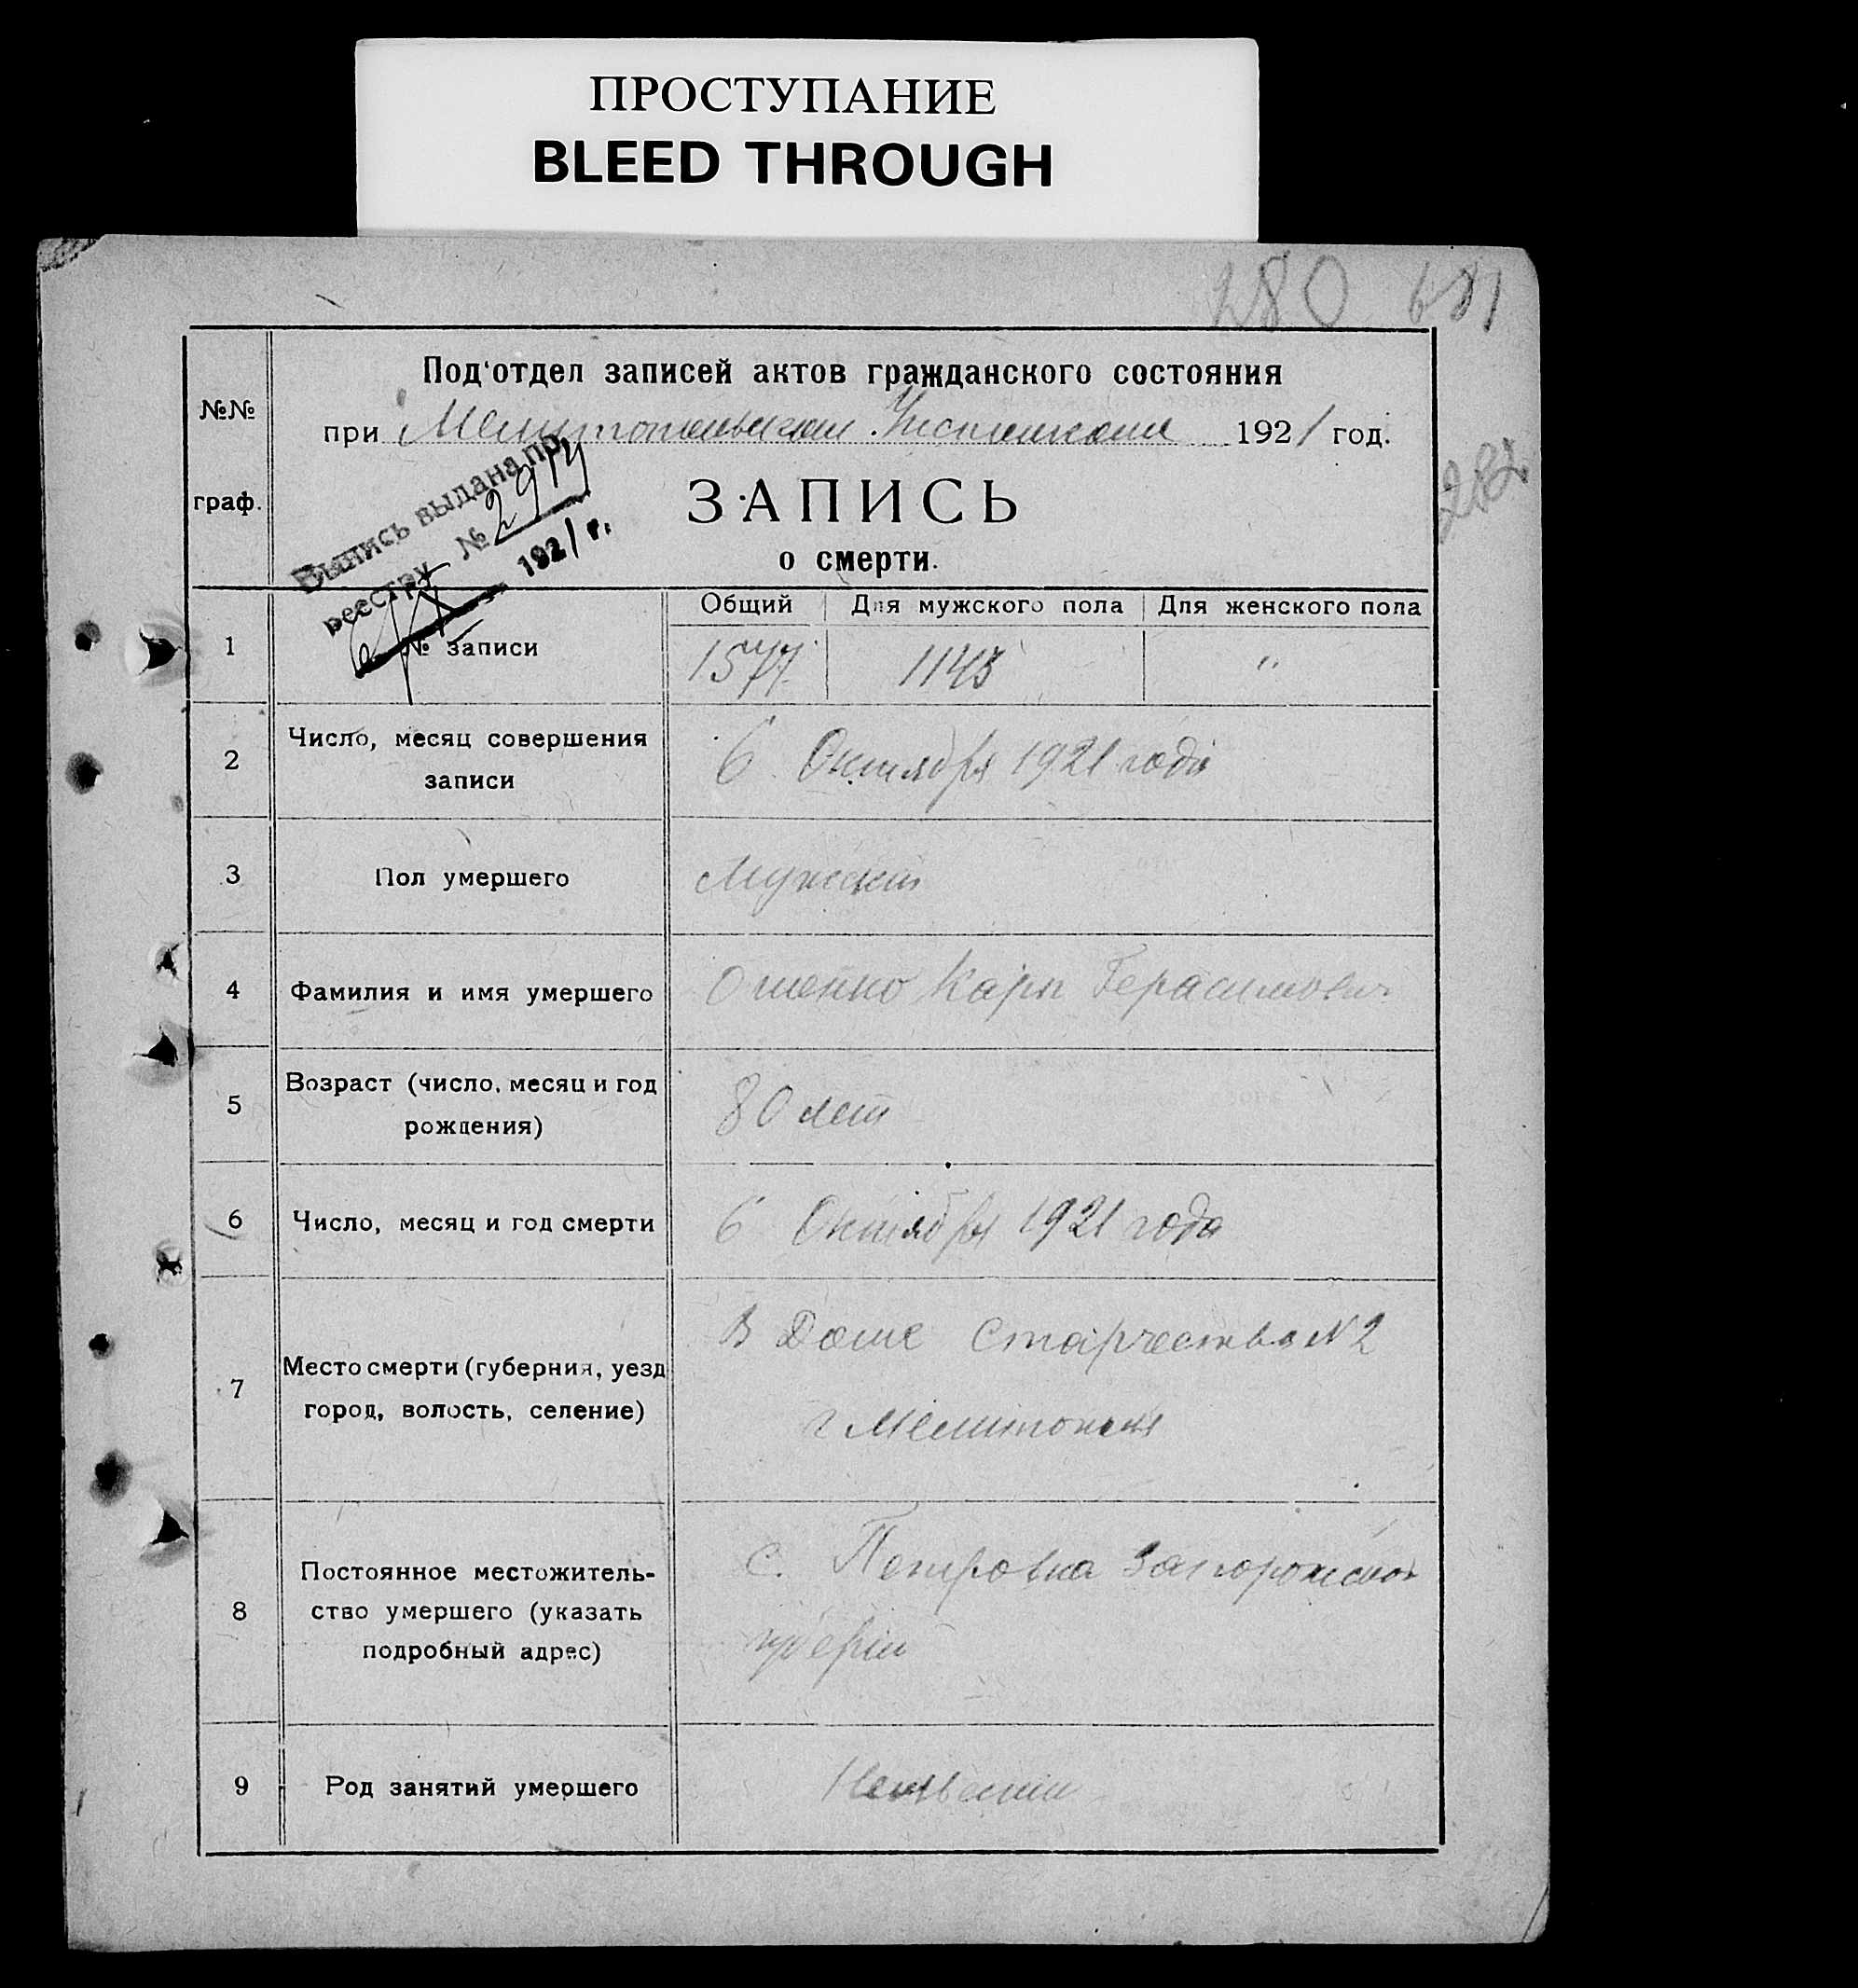 ПРОСТУПАНИЕ
BLEED THROUGH
280 681
282
№№ граф.
Под'отдел записей актов гражданского состояния
при Мелитопольском Исполкоме 1921 год.
Выпись выдана пр.
реестру №
1921 г.
ЗАПИСЬ
о смерти.
Общий Для мужского пола Для женского пола
1 № записи 1577 1145 "
2 Число, месяц совершения
записи
6 Октября 1921 года
3 Пол умершего Мужской
4 Фамилия и имя умершего Карп Герасимович
5 Возраст (число, месяц и год
рождения)
80 лет
6 Число, месяц и год смерти 6 Октября 1921 года
7 Место смерти (губерния, уезд
город, волость, селение)
В Доме Старчества N 2
г Мелитополя
8 Постоянное местожитель-
ство умершего (указать
подробный адрес)
с. Петровка Запорожской
губерии
9 Род занятий умершего